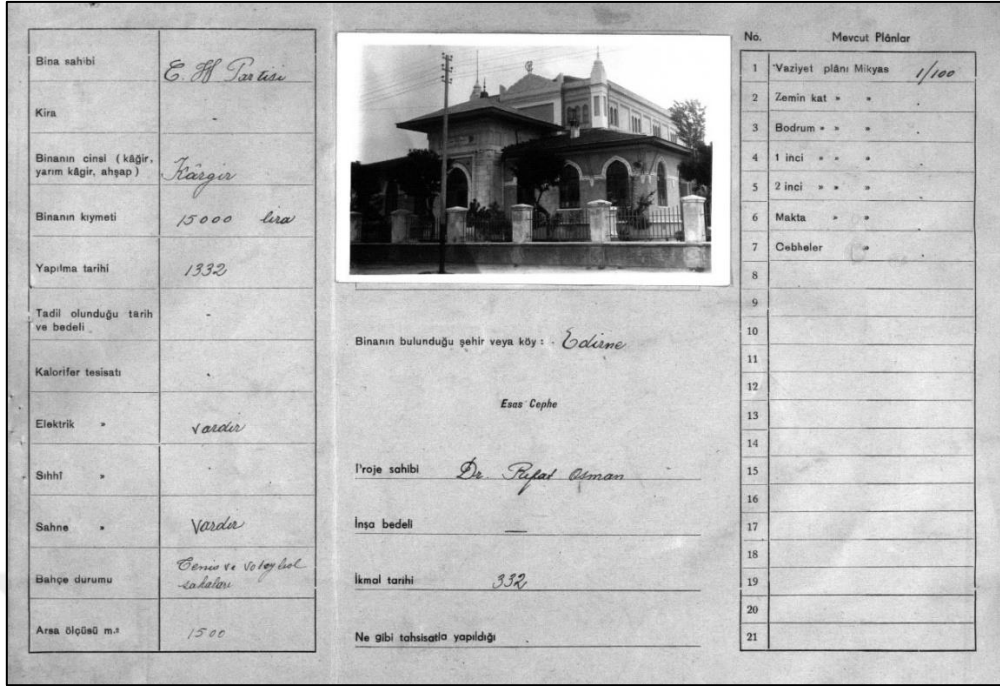 Bina sahibi C. H Partisi
Kira -
Binanın cinsi (kâğir,
yarım kâgir, ahşap) Kârgir
Binanın kıymeti 15000 lira
Yapılma tarihi 1332
Tadil olunduğu tarih
ve bedeli -
Kalorifer tesisatı -
Elektrik » Vardır
Sıhhî »
Sahne » Vardır
Bahçe durumu Tenis ve Voleybol
sahaları
Arsa ölçüsü m.² 1500
Binanın bulunduğu şehir veya köy : Edirne
Esas Cephe
Proje sahibi Dr Rifat Osman
İnşa bedeli —
İkmal tarihi 332
Ne gibi tahsisatla yapıldığı
No. Mevcut Plânlar
1 Vaziyet plânı Mikyas 1/100
2 Zemin kat » »
3 Bodrum » » »
4 1 inci » » »
5 2 inci » » »
6 Makta » »
7 Cebheler »
8
9
10
11
12
13
14
15
16
17
18
19
20
21